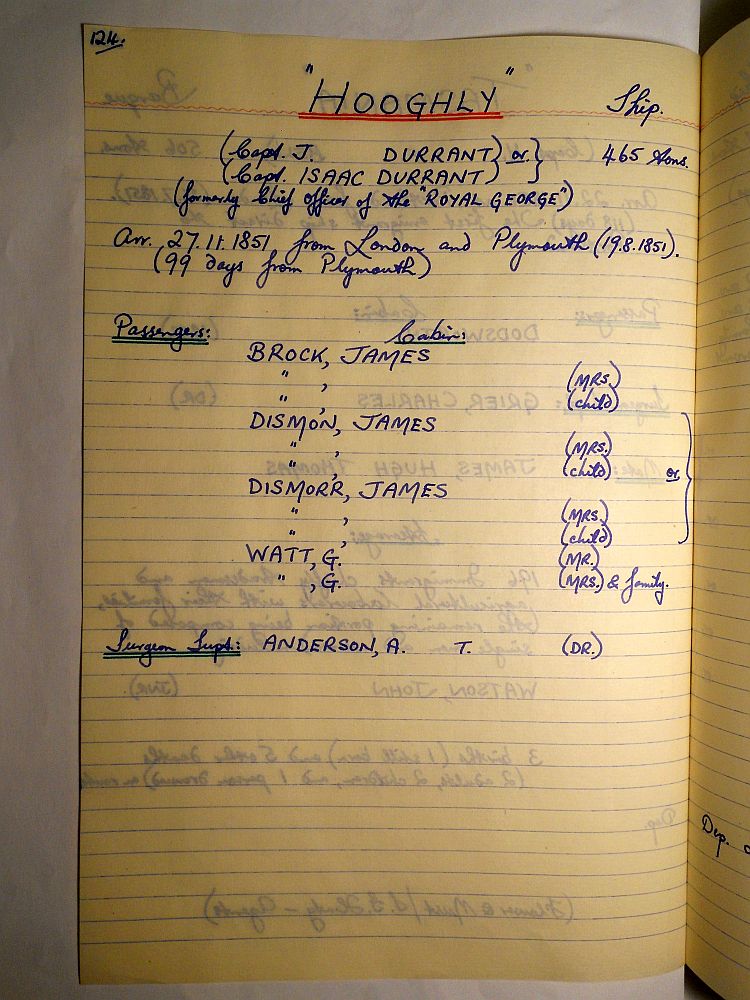 124.
"HOOGHLY" Ship.
(Capt. J. DURRANT) or } 465 tons.
(Capt. ISAAC DURRANT) }
(formerly Chief officer of the "ROYAL GEORGE")
Arr. 27.11.1851 from London and Plymouth (19.8.1851).
(99 days from Plymouth)
Passengers: Cabin:
BROCK, JAMES
" , (MRS.)
" , (child)
DISMON, JAMES
" , (MRS.)
" , (child) or }
DISMORR, JAMES
" , (MRS.)
" , (child)
WATT, G. (MR.)
" , G. (MRS.) & family.
Surgeon Supt.: ANDERSON, A. T. (DR.)
Dep.